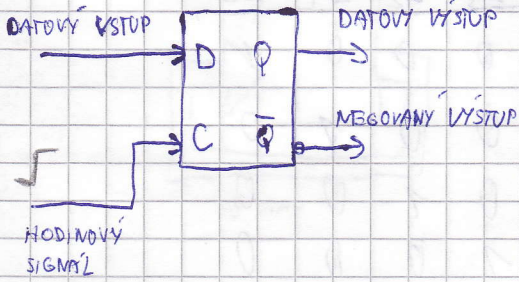 DATOVÝ VSTUP
DATOVÝ VÝSTUP
D Q
NEGOVANÝ VÝSTUP
C Q̅
HODINOVÝ
SIGNÁL